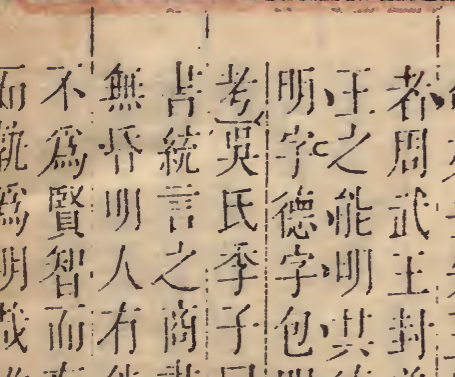 者周武王封
王之能明其
明字德字包
考吳氏季子
書統言之商
無昏明人有
不為賢智而
而孰為明哉